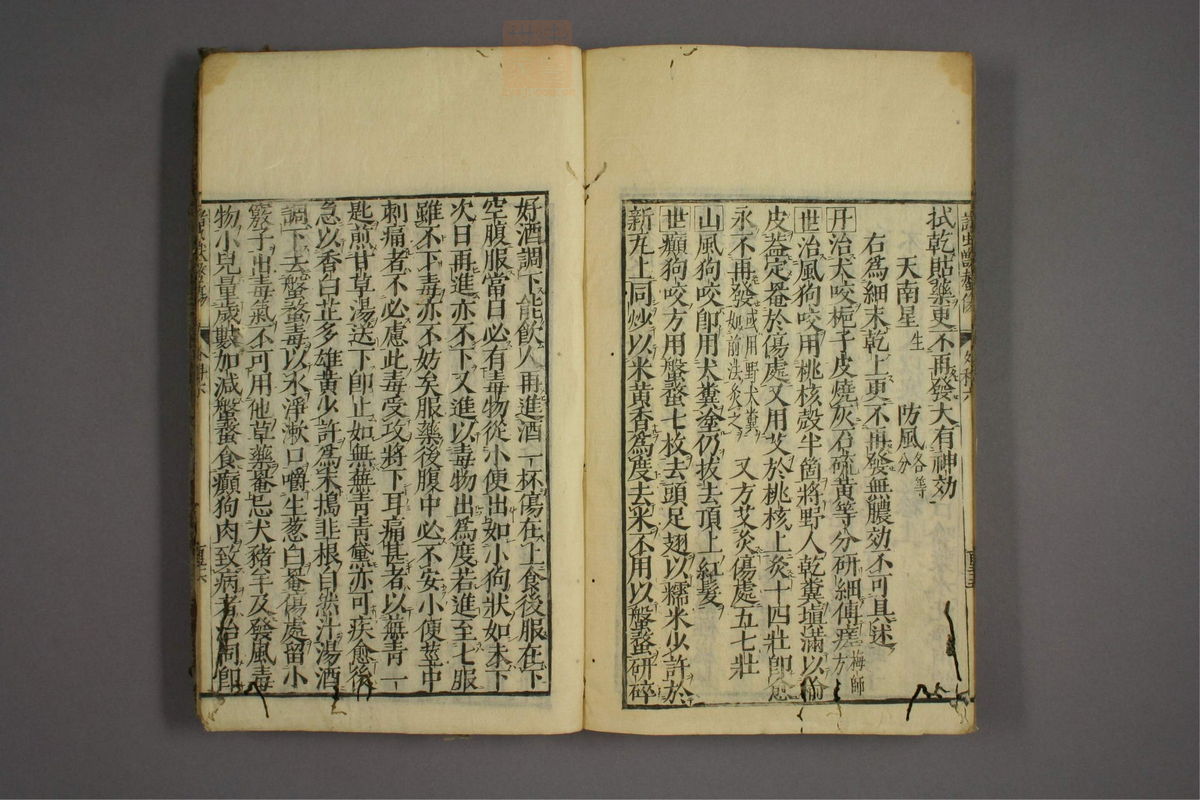 拭乾貼藥更不再發大有神効
天南星生 防風各等分
右爲細末乾上更不再發無膿効不可具述
丹治犬咬梔子皮燒灰石硫黃等分研細傅瘥梅師方
世治風狗咬用桃核殼半箇將野人乾糞塡滿以榆
皮蓋定罨於傷處又用艾於桃核上灸十四壯卽愈
永不再發或用野犬糞如前法灸之 又方艾灸傷處五七壯
山風狗咬卽用犬糞塗仍拔去頂上紅髮
世癲狗咬方用盤蝥七枚去頭足翅以糯米少許於
新瓦上同炒以米黃香爲度去米不用以盤蝥研碎
好酒調下能飮人再進酒一杯傷在上食後服在下
空腹服當日必有毒物從小便出如小狗狀如未下
次日再進亦不下又進以毒物出爲度若進至七服
雖不下毒亦不妨矣服藥後腹中必不安小便莖中
刺痛者不必慮此毒受攻將下耳痛甚者以蕪靑一
匙煎甘草湯送下卽止如無蕪靑靑黛亦可疾愈後
急以香白芷多雄黃少許爲末搗韭根自然汁湯酒
調下去盤蝥毒以水淨漱口嚼生葱白罨傷處留小
竅子出毒氣不可用他草藥罨忌犬豬羊及發風毒
物小兒量歲數加減盤蝥食癲狗肉致病者治同卽